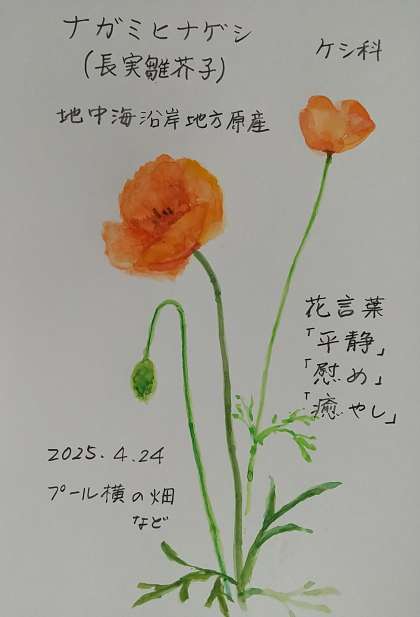 ナガミヒナゲシ
(長実雛芥子)
ケシ科
地中海沿岸地方原産
花言葉
「平静」
「慰め」
「癒やし」
2025.4.24
プール横の畑
など